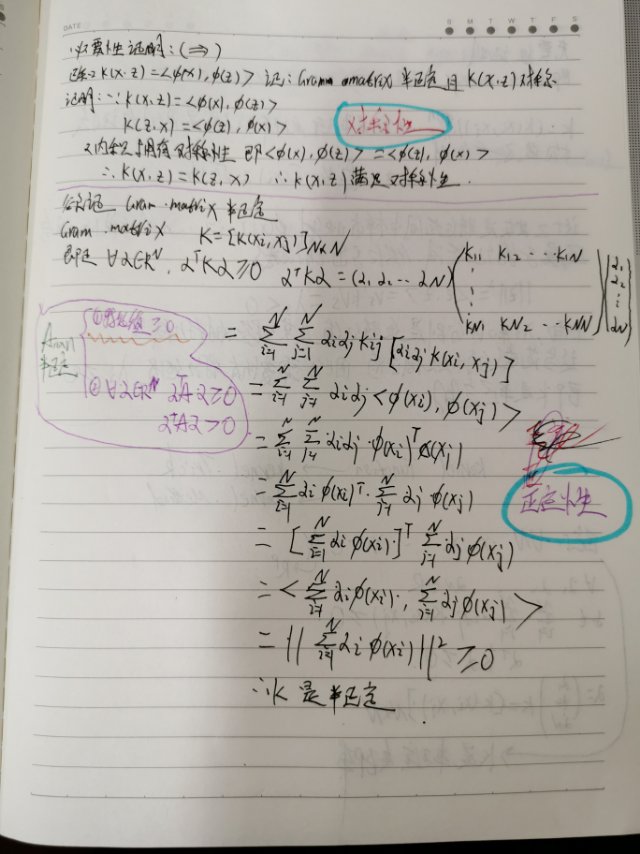 DATE
S M T W T F S
必要性证明：(⇒)
已知 K(x,z)=<φ(x), φ(z)> 证：Gram matrix 半正定 且 K(x,z)对称
证明：∵ K(x,z)=<φ(x), φ(z)>
K(z,x)=<φ(z), φ(x)>
对称性
又内积具有对称性 即<φ(x), φ(z)>=<φ(z), φ(x)>
∴K(x,z)=K(z,x) ∴K(x,z)满足对称性.
Gram matrix 半正定
Gram matrix K=[K(xi,xj)]N×N
即证 ∀α∈R^N, α^TKα≥0 α^TKα=(α1 α2 ⋯ αN)
K11 K12 ⋯ K1N
⋮
KN1 KN2 ⋯ KNN
α1
α2
⋮
αN
An×n
半正定
①特征值≥0
②∀α∈R^N α^TAα≥0
α^TAα>0
= ∑_{i=1}^N ∑_{j=1}^N αiαjKij [αiαjK(xi,xj)]
= ∑_{i=1}^N ∑_{j=1}^N αiαj<φ(xi), φ(xj)>
= ∑_{i=1}^N ∑_{j=1}^N αiαj·φ(xi)^Tφ(xj)
= ∑_{i=1}^N αiφ(xi)^T·∑_{j=1}^N αjφ(xj)
正定性
= [∑_{i=1}^N αiφ(xi)]^T ∑_{j=1}^N αjφ(xj)
= <∑_{i=1}^N αiφ(xi), ∑_{j=1}^N αjφ(xj)>
= ||∑_{i=1}^N αiφ(xi)||^2 ≥0
∴K 是半正定